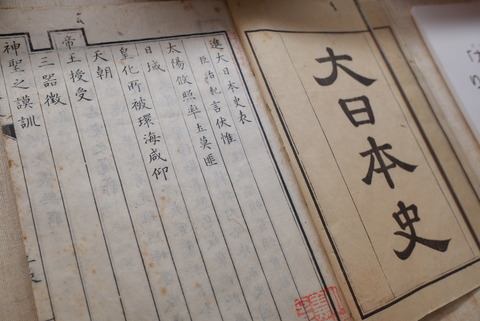 大日本史
進大日本史表
臣治紀言伏惟
太陽攸照率土莫匪
日域
皇化所被環海咸仰
天朝
帝王授受
三器徴
神聖之謨訓